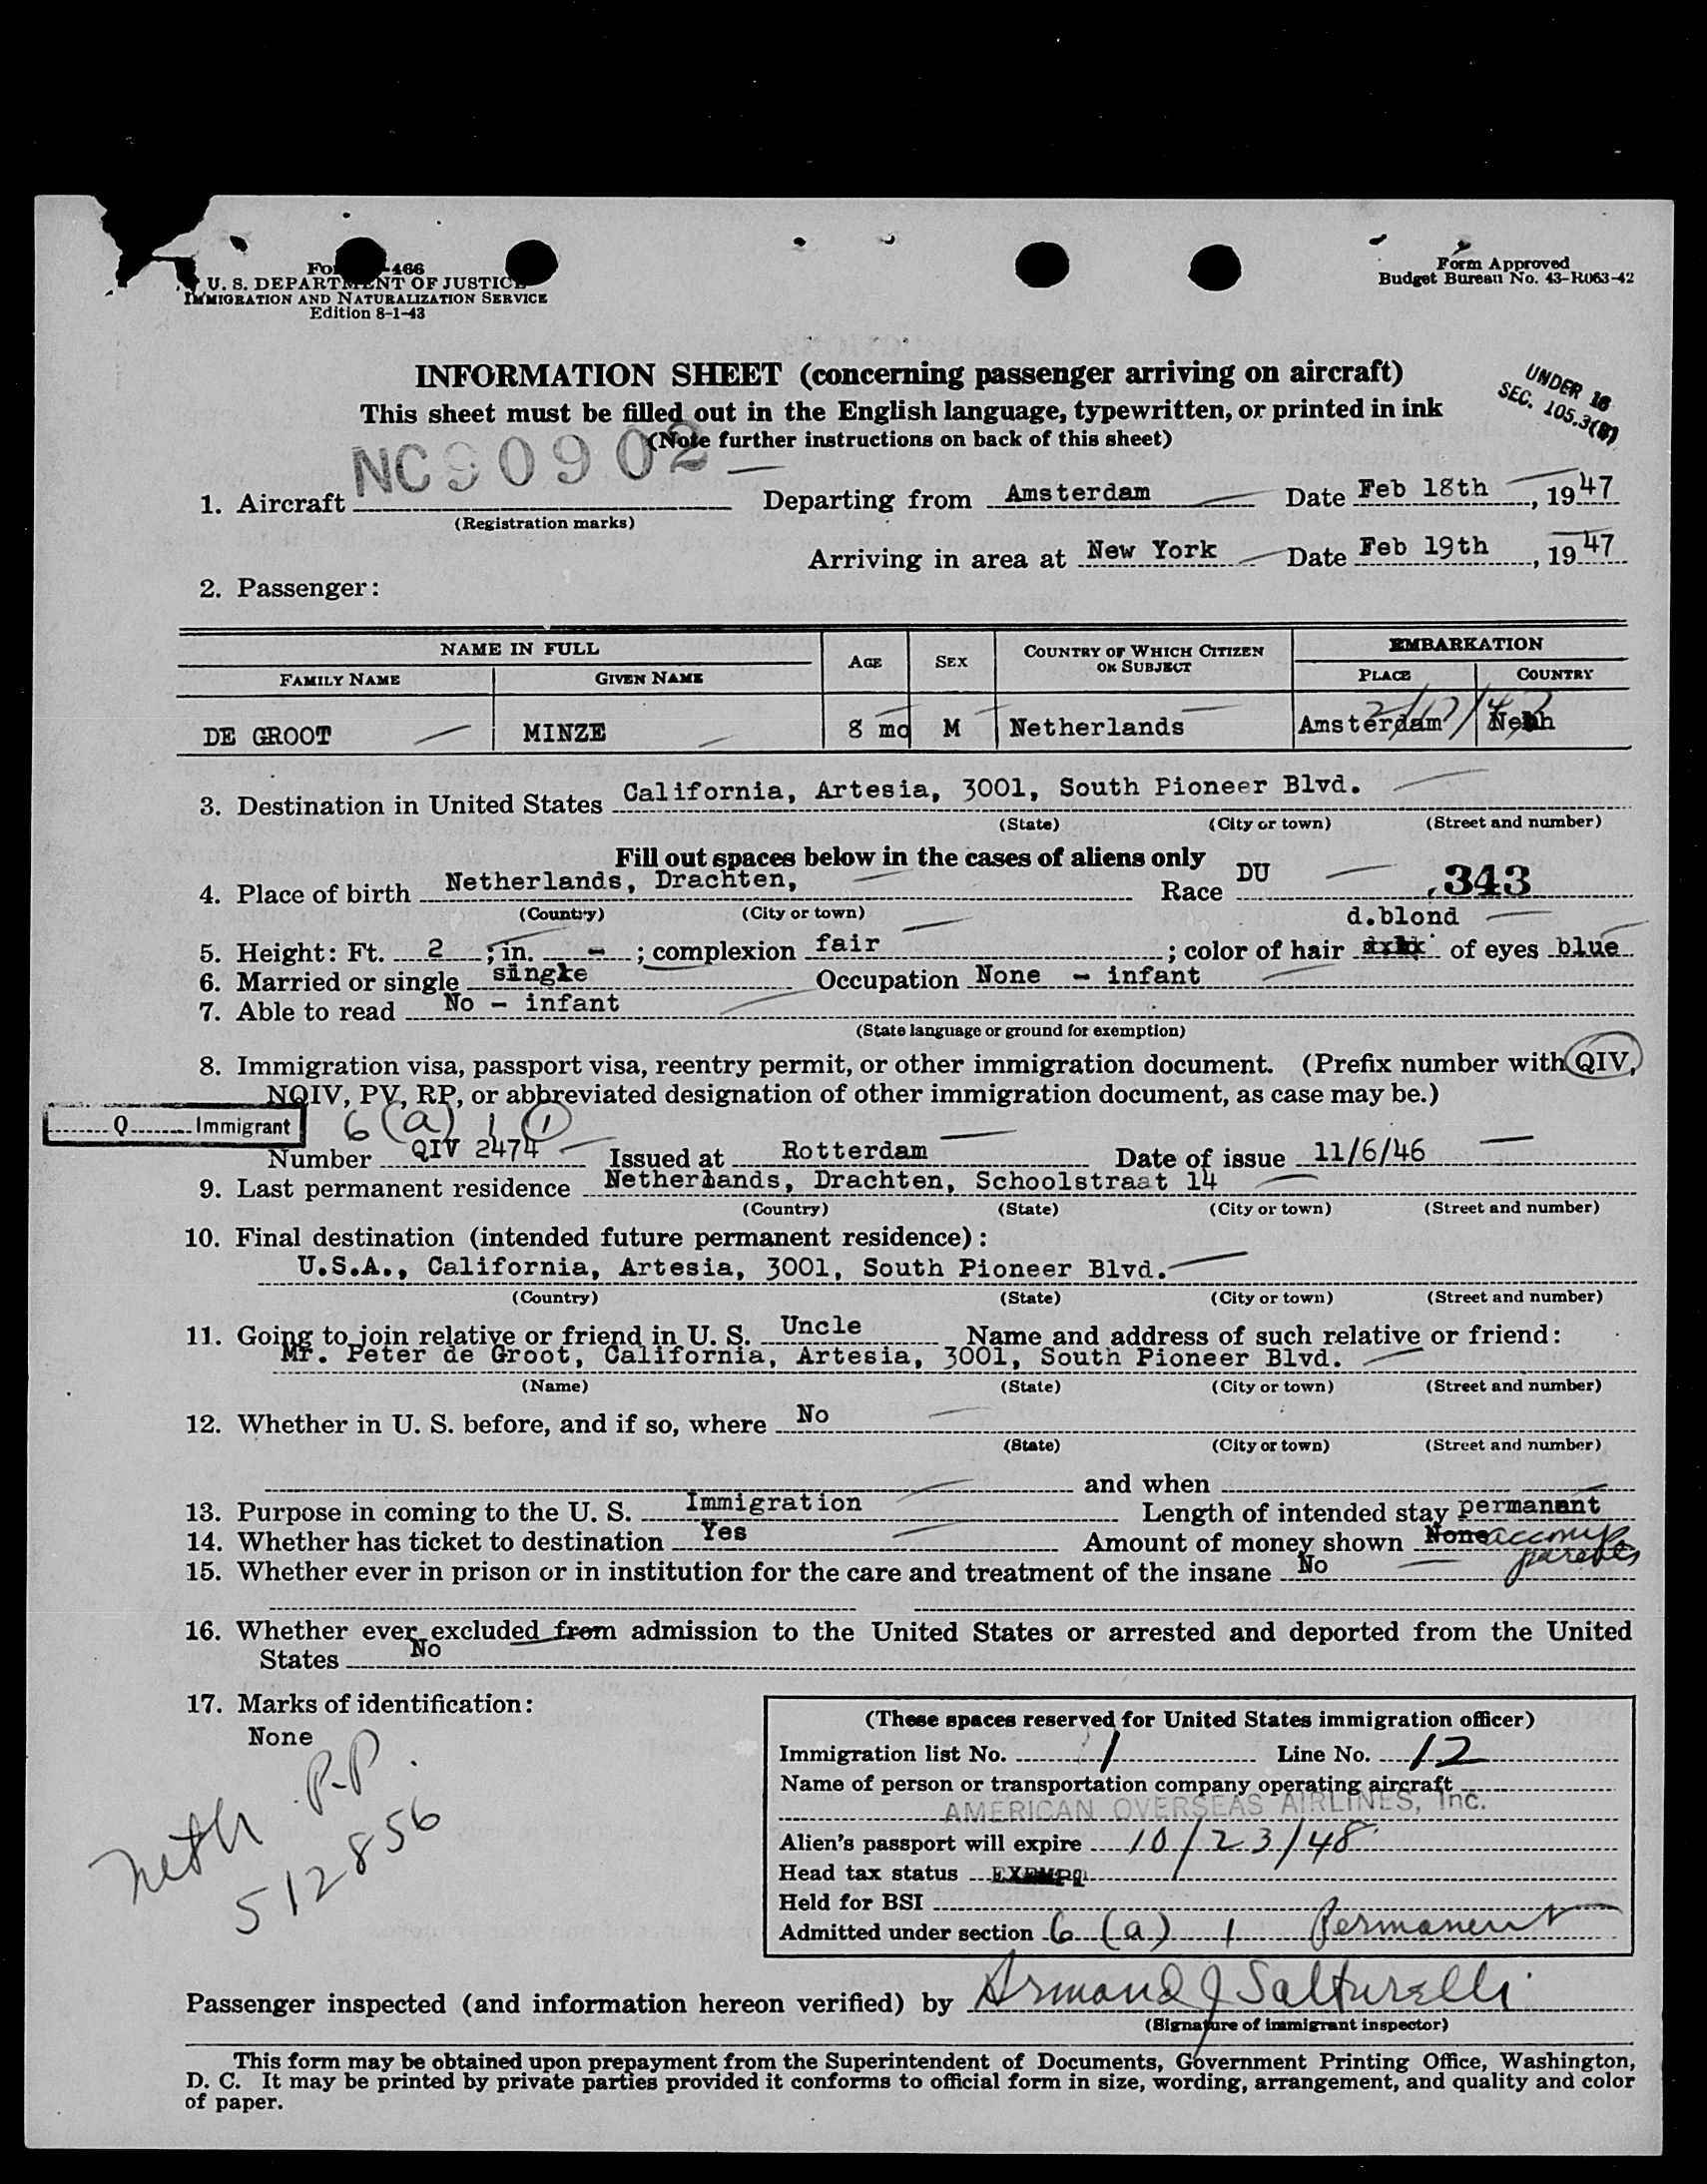 Form -466
U. S. DEPARTMENT OF JUSTICE
IMMIGRATION AND NATURALIZATION SERVICE
Edition 8-1-43
Form Approved
Budget Bureau No. 43-R063-42
INFORMATION SHEET (concerning passenger arriving on aircraft)
UNDER 16
SEC. 105.3(B)
This sheet must be filled out in the English language, typewritten, or printed in ink
(Note further instructions on back of this sheet)
1. Aircraft NC90902 Departing from Amsterdam Date Feb 18th, 1947
(Registration marks)
Arriving in area at New York Date Feb 19th, 1947
2. Passenger:
NAME IN FULL AGE SEX COUNTRY OF WHICH CITIZEN OR SUBJECT EMBARKATION
FAMILY NAME GIVEN NAME PLACE COUNTRY
DE GROOT MINZE 8 mo M Netherlands Amsterdam Neth
3. Destination in United States California, Artesia, 3001, South Pioneer Blvd.
(State) (City or town) (Street and number)
Fill out spaces below in the cases of aliens only
4. Place of birth Netherlands, Drachten, Race DU 343
(Country) (City or town)
d.blond
5. Height: Ft. 2; in. -; complexion fair; color of hair of eyes blue
6. Married or single single Occupation None - infant
7. Able to read No - infant
(State language or ground for exemption)
8. Immigration visa, passport visa, reentry permit, or other immigration document. (Prefix number with QIV,
NQIV, PV, RP, or abbreviated designation of other immigration document, as case may be.)
Q Immigrant 6 (a) 1 (1)
Number QIV 2474 Issued at Rotterdam Date of issue 11/6/46
9. Last permanent residence Netherlands, Drachten, Schoolstraat 14
(Country) (State) (City or town) (Street and number)
10. Final destination (intended future permanent residence):
U.S.A., California, Artesia, 3001, South Pioneer Blvd.
(Country) (State) (City or town) (Street and number)
11. Going to join relative or friend in U. S. Uncle Name and address of such relative or friend:
Mr. Peter de Groot, California, Artesia, 3001, South Pioneer Blvd.
(Name) (State) (City or town) (Street and number)
12. Whether in U. S. before, and if so, where No
(State) (City or town) (Street and number)
and when
13. Purpose in coming to the U. S. Immigration Length of intended stay permanent
14. Whether has ticket to destination Yes Amount of money shown None accomp parents
15. Whether ever in prison or in institution for the care and treatment of the insane No
16. Whether ever excluded from admission to the United States or arrested and deported from the United
States No
17. Marks of identification:
None
Neth P.P.
512856
(These spaces reserved for United States immigration officer)
Immigration list No. 1 Line No. 12
Name of person or transportation company operating aircraft
AMERICAN OVERSEAS AIRLINES, Inc.
Alien's passport will expire 10/23/48
Head tax status
Held for BSI
Admitted under section 6 (a) 1 Permanent
Passenger inspected (and information hereon verified) by Armand J Salturelli
(Signature of immigrant inspector)
This form may be obtained upon prepayment from the Superintendent of Documents, Government Printing Office, Washington,
D. C. It may be printed by private parties provided it conforms to official form in size, wording, arrangement, and quality and color
of paper.